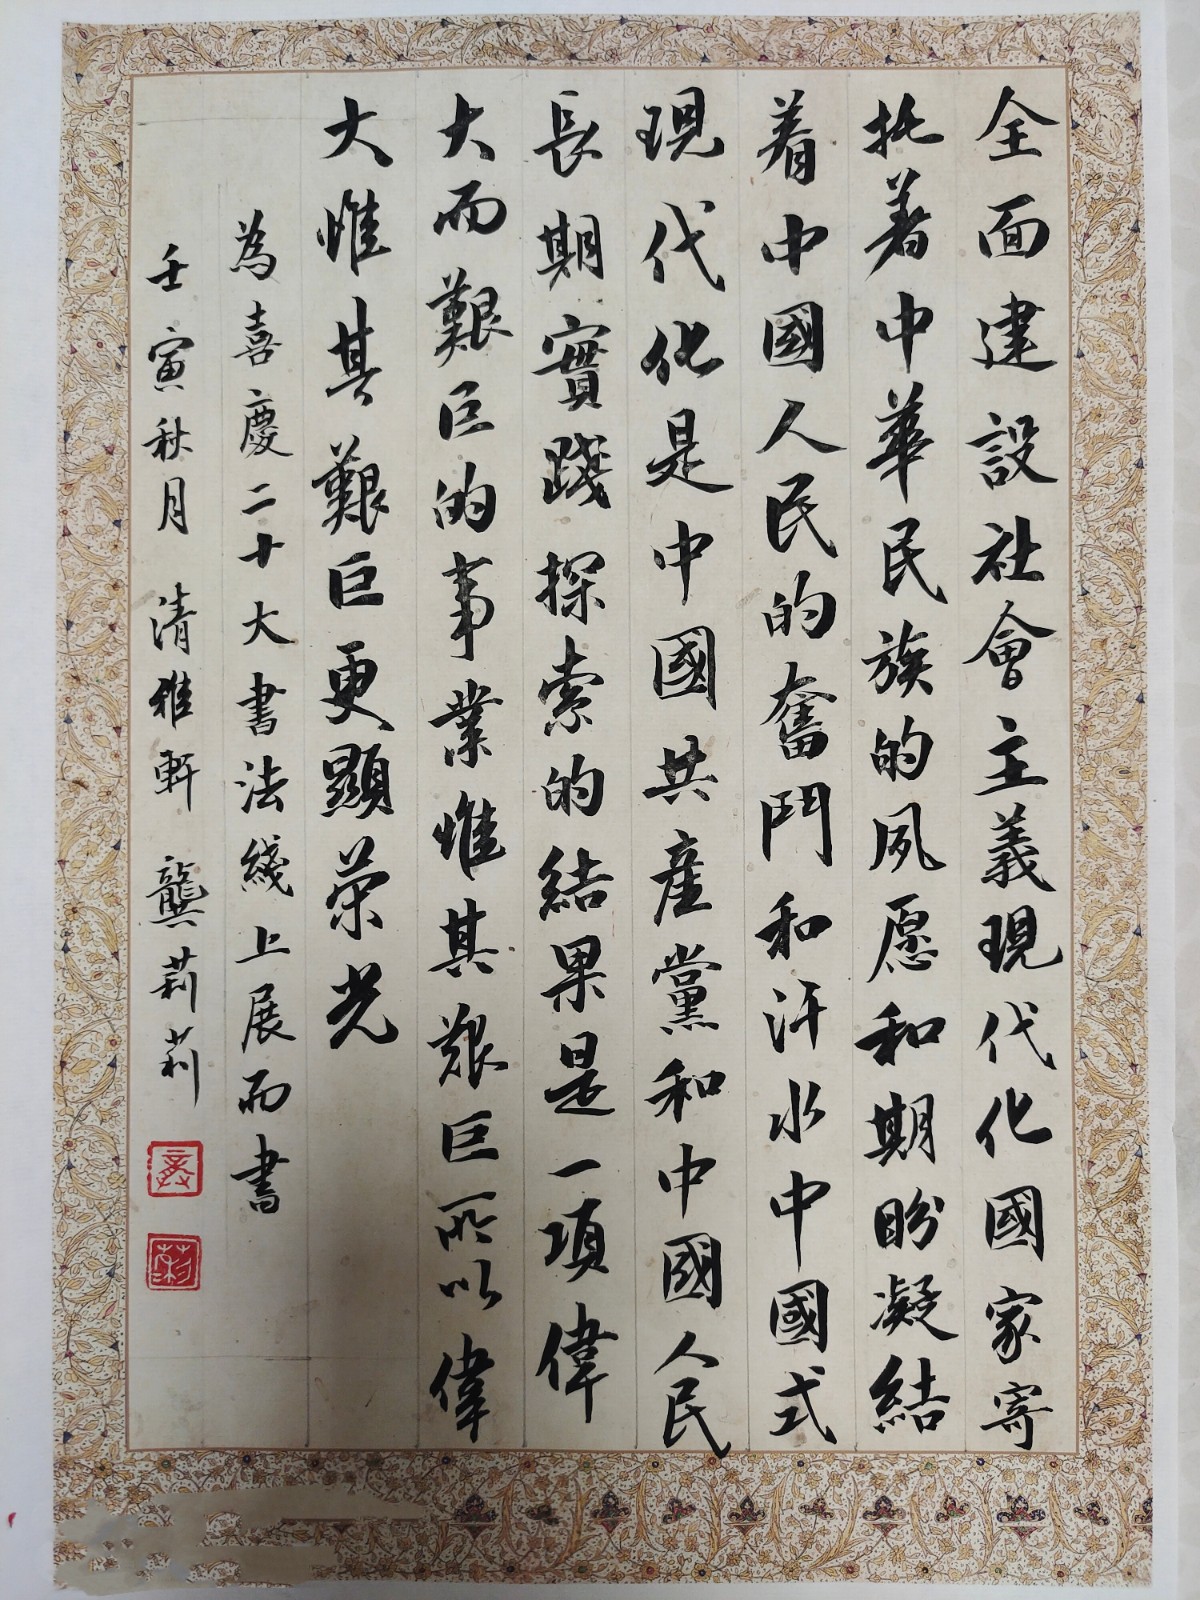 全面建設社會主義現代化國家寄
托着中華民族的夙愿和期盼凝結
着中國人民的奮鬥和汗水中國式
現代化是中國共產黨和中國人民
長期實踐探索的結果是一項偉
大而艱巨的事業惟其艱巨所以偉
大惟其艱巨更顯榮光
為喜慶二十大書法綫上展而書
壬寅秋月 清雅軒 龔莉莉